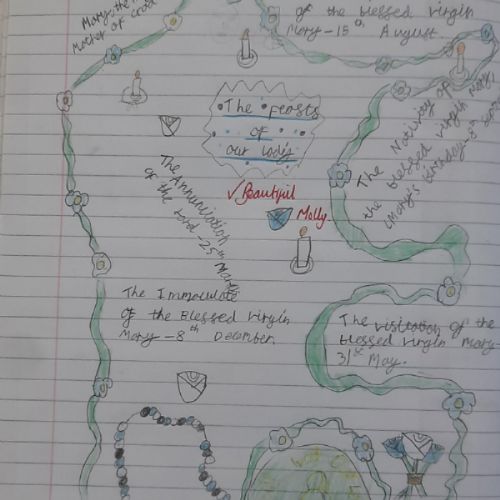 Mary, the
Mother of God
of the blessed virgin
Mary - 15th August.
The feasts
of
our lady
✓ Beautiful
Molly
The Nativity of
the blessed virgin Mary
(Mary's birthday - 8th Sep
The Annunciation
of the Lord - 25th March
The Immaculate
of the Blessed Virgin
Mary - 8th December.
The visitation of the
blessed virgin Mary -
31st May.